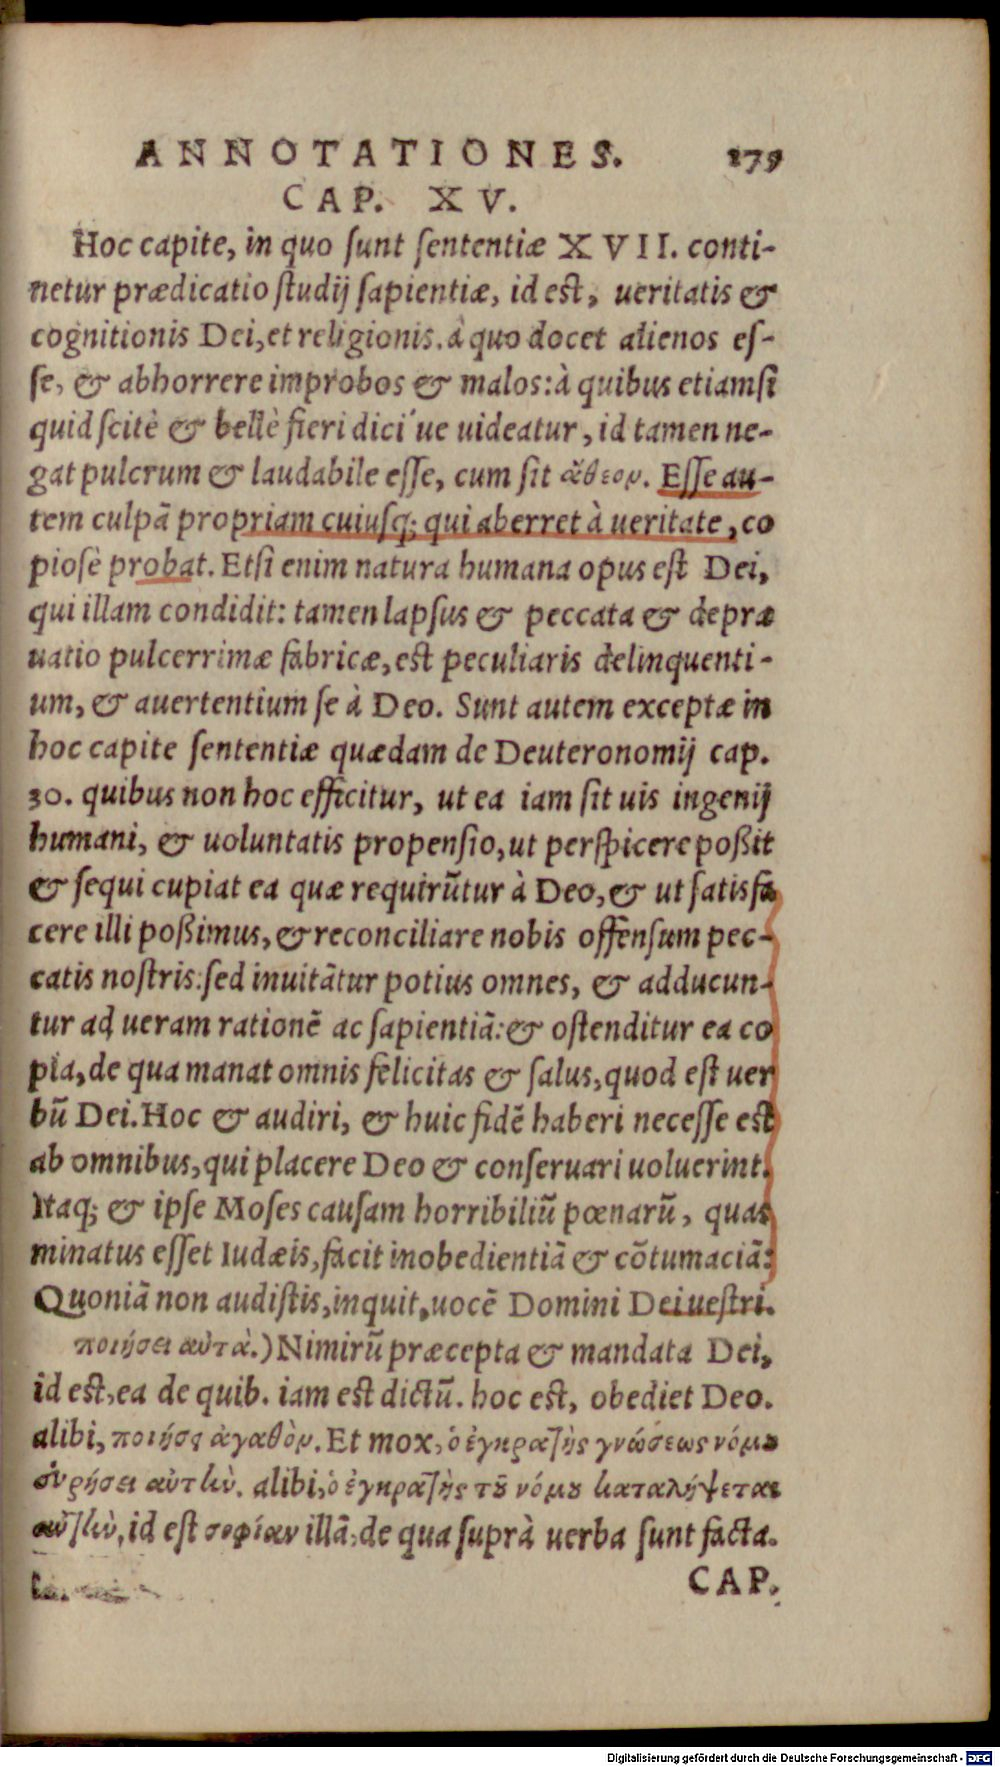 ANNOTATIONES. 279
CAP. XV.
Hoc capite, in quo ſunt ſententiæ XVII. conti-
netur prædicatio ſtudij ſapientiæ, id est, ueritatis &
cognitionis Dei, et religionis. à quo docet alienos eſ-
ſe, & abhorrere improbos & malos: à quibus etiamſi
quid ſcitè & bellè fieri dici´ue uideatur, id tamen ne-
gat pulcrum & laudabile eſſe, cum ſit ἄθεον. Eſſe au-
tem culpã propriam cuiuſq; qui aberret à ueritate, co
pioſè probat. Etſi enim natura humana opus eſt Dei,
qui illam condidit: tamen lapſus & peccata & depræ
uatio pulcerrimæ fabricæ, est peculiaris delinquenti-
um, & auertentium ſe à Deo. Sunt autem exceptæ in
hoc capite ſententiæ quædam de Deuteronomij cap.
30. quibus non hoc efficitur, ut ea iam ſit uis ingenij
humani, & uoluntatis propenſio, ut perſpicere poßit
& ſequi cupiat ea quæ requirũtur à Deo, & ut ſatisfa
cere illi poßimus, & reconciliare nobis offenſum pec-
catis noſtris: ſed inuitãtur potius omnes, & adducun-
tur ad ueram rationẽ ac ſapientiã: & oſtenditur ea co
pia, de qua manat omnis felicitas & ſalus, quod eſt uer
bũ Dei. Hoc & audiri, & huic fidẽ haberi neceſſe est
ab omnibus, qui placere Deo & conſeruari uoluerint.
Itaq; & ipſe Moſes cauſam horribiliũ pœnarũ, quas
minatus eſſet Iudæis, facit inobedientiã & cõtumaciã:
Quoniã non audiſtis, inquit, uocẽ Domini Dei ueſtri.
ποιήσει αὐτὰ.) Nimirũ præcepta & mandata Dei,
id eſt, ea de quib. iam est dictũ. hoc eſt, obediet Deo.
alibi, ποιήσῃς ἀγαθὸν. Et mox, ὁ ἐγκρατὴς γνώσεως νόμου
εὑρήσει αὐτὴν. alibi, ὁ ἐγκρατὴς τοῦ νόμου καταλήψεται
αὐτὴν, id eſt σοφίαν illã, de qua ſuprà uerba ſunt facta.
CAP.
Digitalisierung gefördert durch die Deutsche Forschungsgemeinschaft - DFG